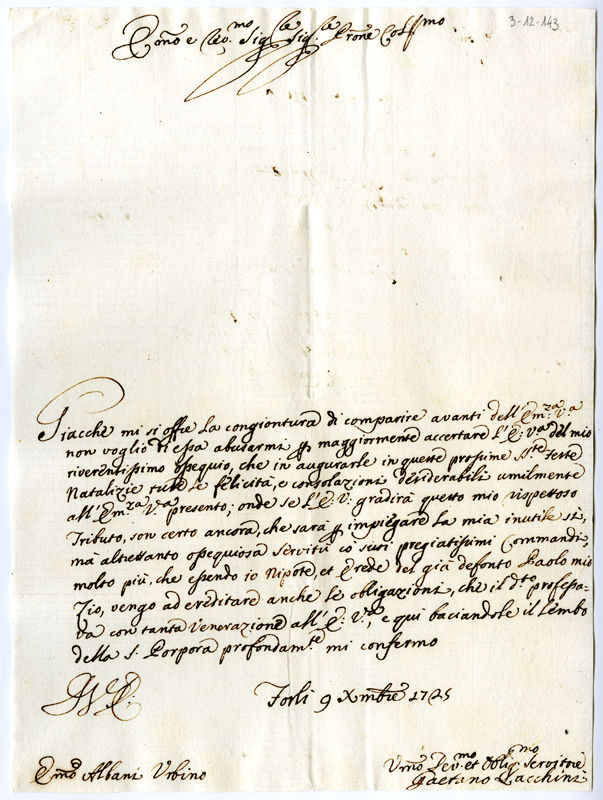 3-12-143
Emo e Reo.mo Sig.re Sig.re Prone Colmo
Giacche mi si offre la congiontura di comparire avanti dell'Em.za V.a
non voglio di essa abusarmi per maggiormente accertare l'E. V.a del mio
riverentissimo ossequio, che in augurarle in queste prossime S.te feste
Natalizie tutte le felicità, e consolazioni desiderabili umilmente
all'Em.za V.a presento; onde se l'E. V. gradirà questo mio rispettoso
Tributo, son certo ancora, che sarà per impiegare la mia inutile sì,
mà altrettanto ossequiosa servitù co suoi pregiatissimi Commandi,
molto più, che essendo io Nipote, et Erede del già defonto Paolo mio
Zio, vengo ad ereditare anche le obligazioni, che il d.to professa-
va con tanta venerazione all'E. V.ra, e qui baciandole il lembo
della S. Porpora profondam.te mi confermo
Forlì 9 Xmbre 1725
Emo Albani Urbino
Umo Dev.mo et Oblig.mo Servitore
Gaetano Zacchini